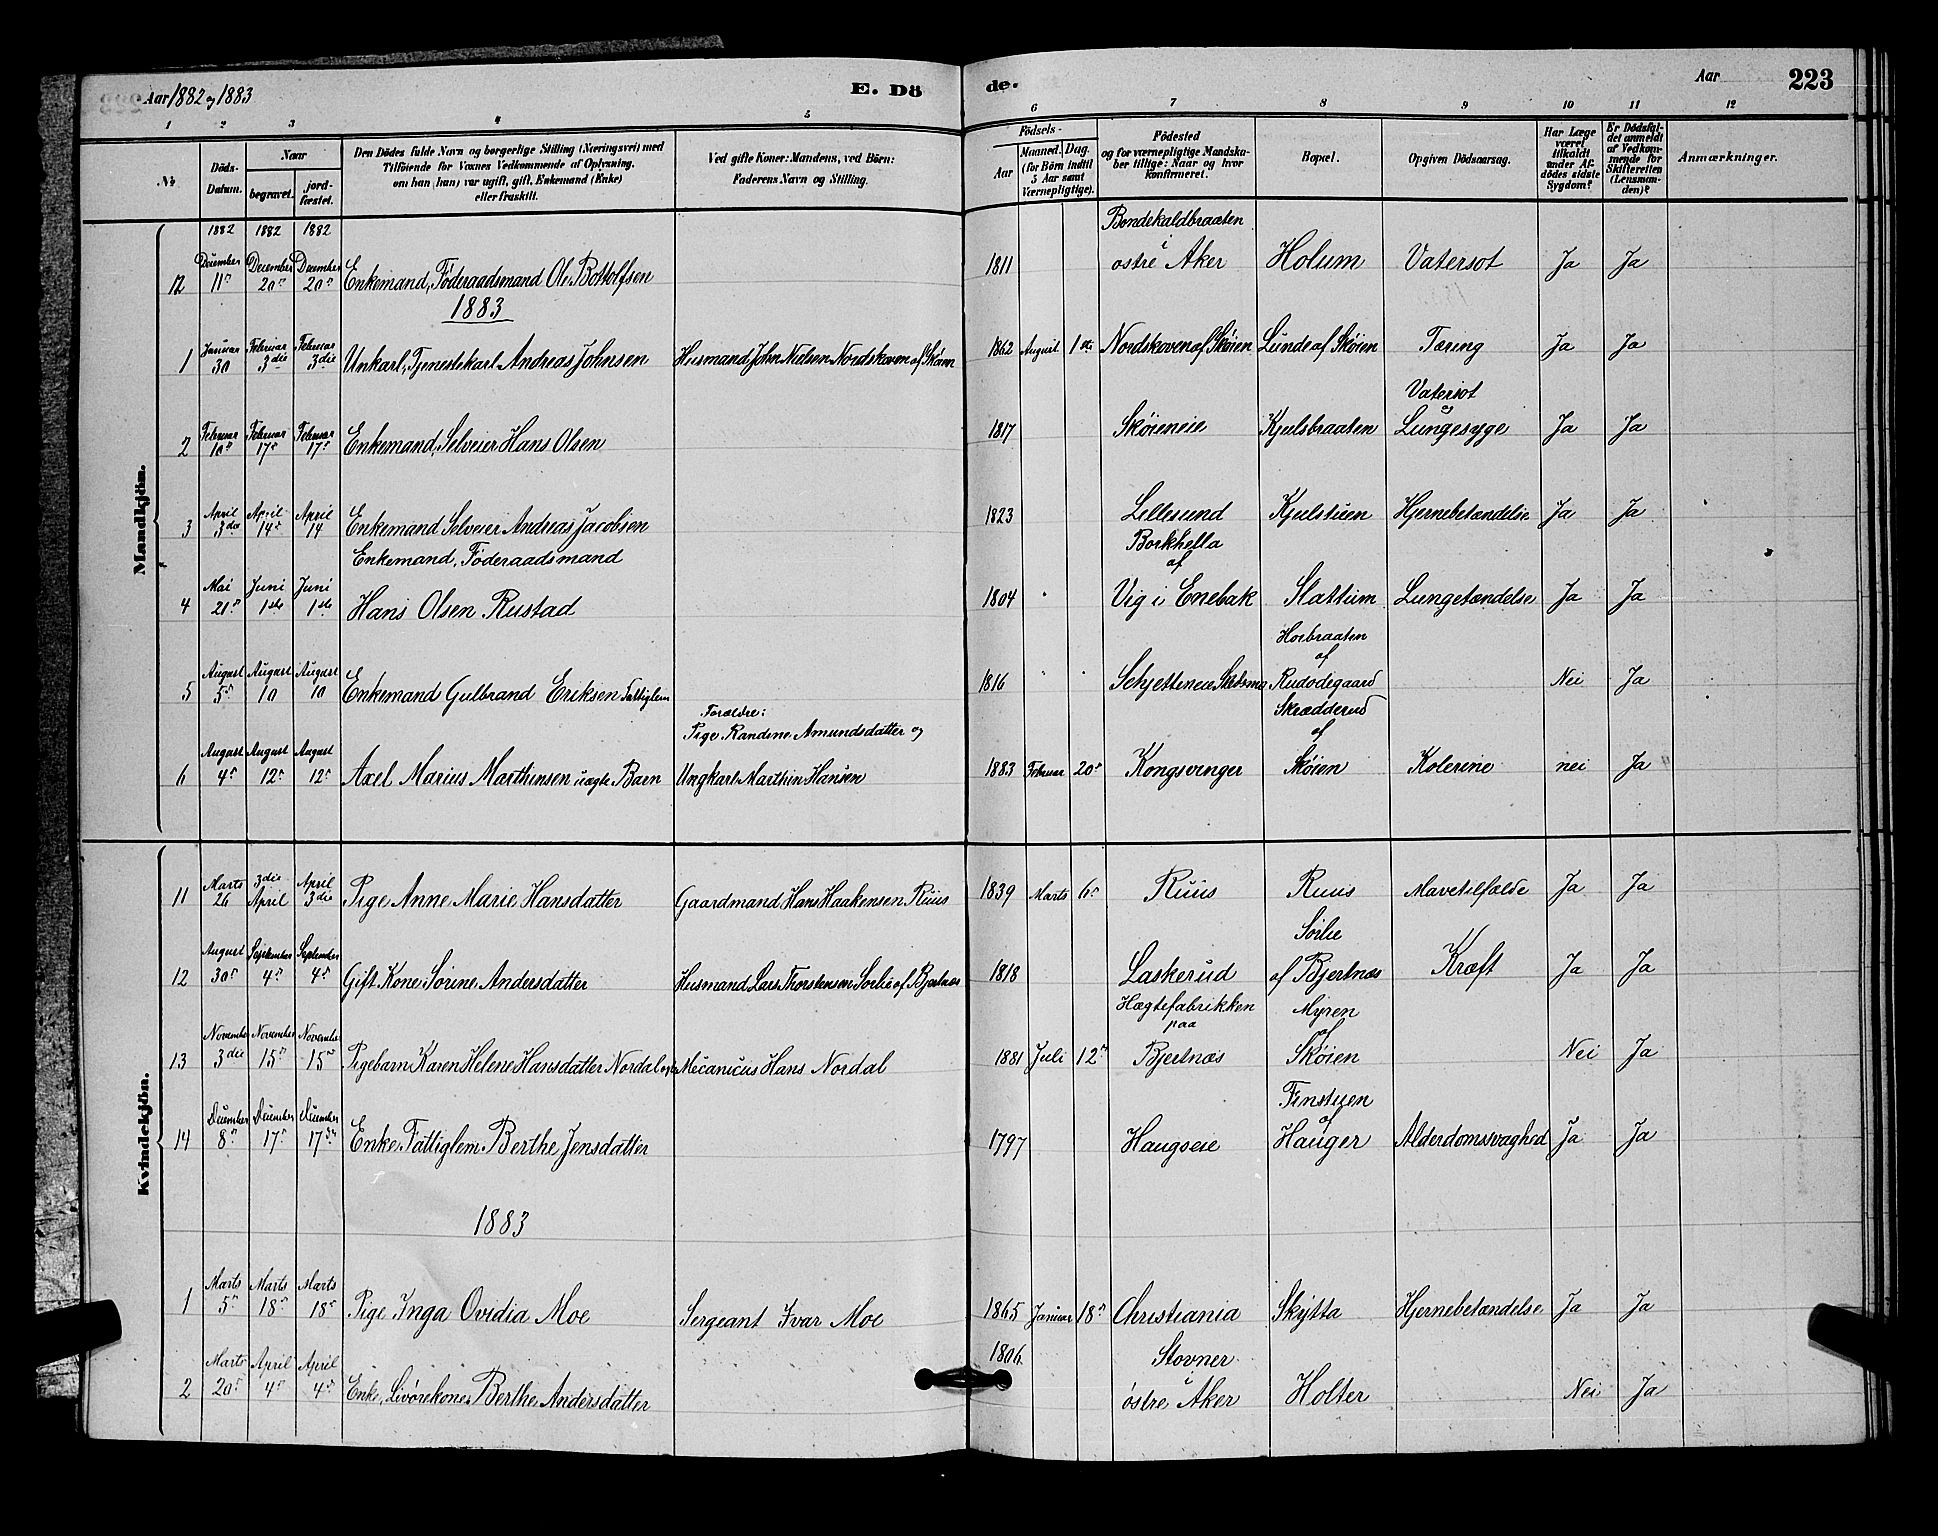 Aar 1882 og 1883
E. Dö
de.
Aar
223
1 2 3 4 5 6 7 8 9 10 11 12
No
Döds-Datum.
Naar
begravet.
jord-fæstet.
Den Dödes fulde Navn og borgerlige Stilling (Næringsvei) med
Tilföiende for Voxnes Vedkommende af Oplysning,
om han (hun) var ugift, gift, Enkemand (Enke)
eller fraskilt.
Ved gifte Koner: Mandens, ved Börn:
Faderens Navn og Stilling.
Födsels-
Aar
Maaned. Dag.
(for Börn indtil
5 Aar samt
Værnepligtige).
Födested
og for værnepligtige Mandska-
ber tillige: Naar og hvor
konfirmeret.
Bopæl.
Opgiven Dödsaarsag.
Har Læge
været
tilkaldt
under Af-
dödes sidste
Sygdom?
Er Dödsfal-
det anmeldt
af Vedkom-
mende for
Skifteretten
(Lensman-
den)?
Anmærkninger.
Mandkjön.
1882 1882 1882
12 December 11te December 20de December 20de Enkemand, Föderaadsmand Ole Bottolfsen 1811 Bondekaldbraaten i østre Aker Holum Vatersot Ja Ja
1883
1 Januar 30 Februar 3die Februar 3die Unkarl, Tjenestekarl Andreas Johnsen Husmand John Nielsen Nordskoven af Skøien 1862 August 1ste Nordskoven af Skøien Lunde af Skøien Tæring Ja Ja
2 Februar 10de Februar 17de Februar 17de Enkemand, Selveier Hans Olsen 1817 Skøieneie Kjulsbraaten Vatersot og Lungesyge Ja Ja
3 April 3die April 14de April 14 Enkemand Selveier Andreas Jacobsen 1823 Lillesund Kjulstuen Hjernebetændelse Ja Ja
4 Mai 21de Juni 1ste Juni 1ste Enkemand, Föderaadsmand Hans Olsen Rustad 1804 Borkhella af Vig i Enebak Slattum Lungetændelse Ja Ja
5 August 5te August 10 August 10 Enkemand Gulbrand Eriksen Fattiglem 1816 Schjetteneie Skedsmo Horbraaten af Rudodegaard Nei Ja
6 August 4de August 12te August 12te Axel Marius Marthinsen uægte Barn Forældre: Pige Randine Amundsdatter og Ungkarl Marthin Hansen 1883 Februar 20de Kongsvinger Skrædderud af Skøien Kolerine nei Ja
Kvindekjön.
11 Marts 26 3die April April 3die Pige Anne Marie Hansdatter Gaardmand Hans Haakensen Ruus 1839 Marts 6te Ruus Ruus Mavetilfælde Ja Ja
12 August 30te September 4de September 4de Gift Kone Sörine Andersdatter Husmand Lars Thorstensen Sørlie af Bjertnæs 1818 Laskerud Sørlie af Bjertnæs Kræft Ja Ja
13 November 3die November 15de November 15de Pigebarn Karen Helene Hansdatter Nordal Mecanicus Hans Nordal 1881 Juli 12te Hægtefabrikken paa Bjertnæs Myren af Skøien Nei Ja
14 December 8de December 17de December 17de Enke, Fattiglem Berthe Jensdatter 1797 Haugseie Finstuen af Hauger Alderdomssvaghed Ja Ja
1883
1 Marts 5te Marts 18de Marts 18de Pige Inga Ovidia Moe Sergeant Ivar Moe 1865 Januar 18de Christiania Skÿtta Hjernebetændelse Ja Ja
2 Marts 20de April 4de April 4de Enke, Livörekone Berthe Andersdatter 1806 Stovner i østre Aker Holter Nei Ja